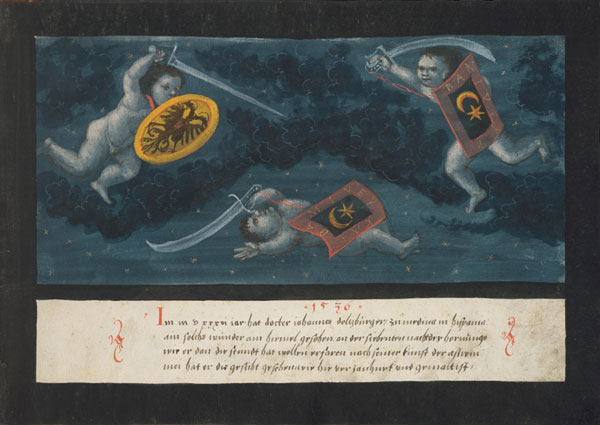 1530
Im m v xxxii iar hat docter iohannes zu medina in hispania
ain solchs wunder am himel gesehen an der sibenten nacht der hornungs
wie er dan die stundt hat wellen erfaren nach seiner kunst der astrem
men hat er die gesicht gesehen wie hie verzaichnet und gemalt ist